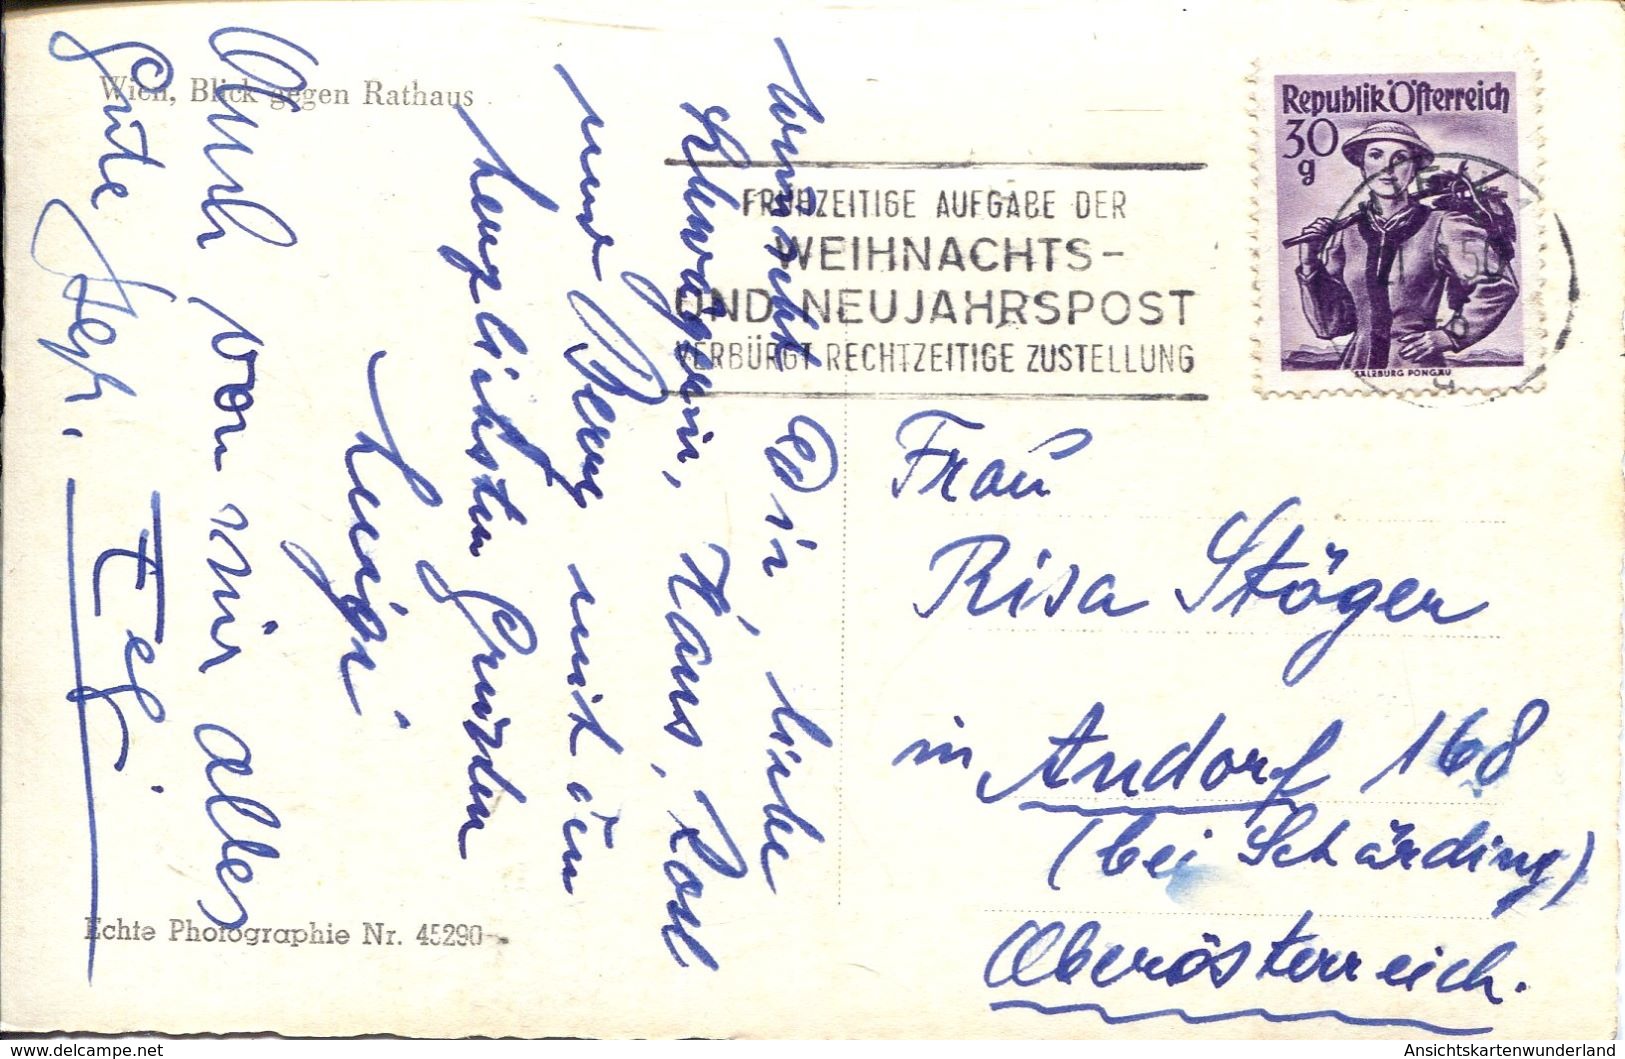 Wien, Blick gegen Rathaus
wünscht Dir, liebe
Schwägerin, Hans, Rosl
und Berg mit den
herzlichsten Grüßen
Auch von mir alles
Gute
Echte Photographie Nr. 45290
FRÜHZEITIGE AUFGABE DER
WEIHNACHTS-
UND NEUJAHRSPOST
VERBÜRGT RECHTZEITIGE ZUSTELLUNG
Republik Österreich
30
g
SALZBURG PONGAU
Frau
Risa Stöger
in Andorf 168
(bei Schärding)
Oberösterreich.
Ansichtskartenwunderland